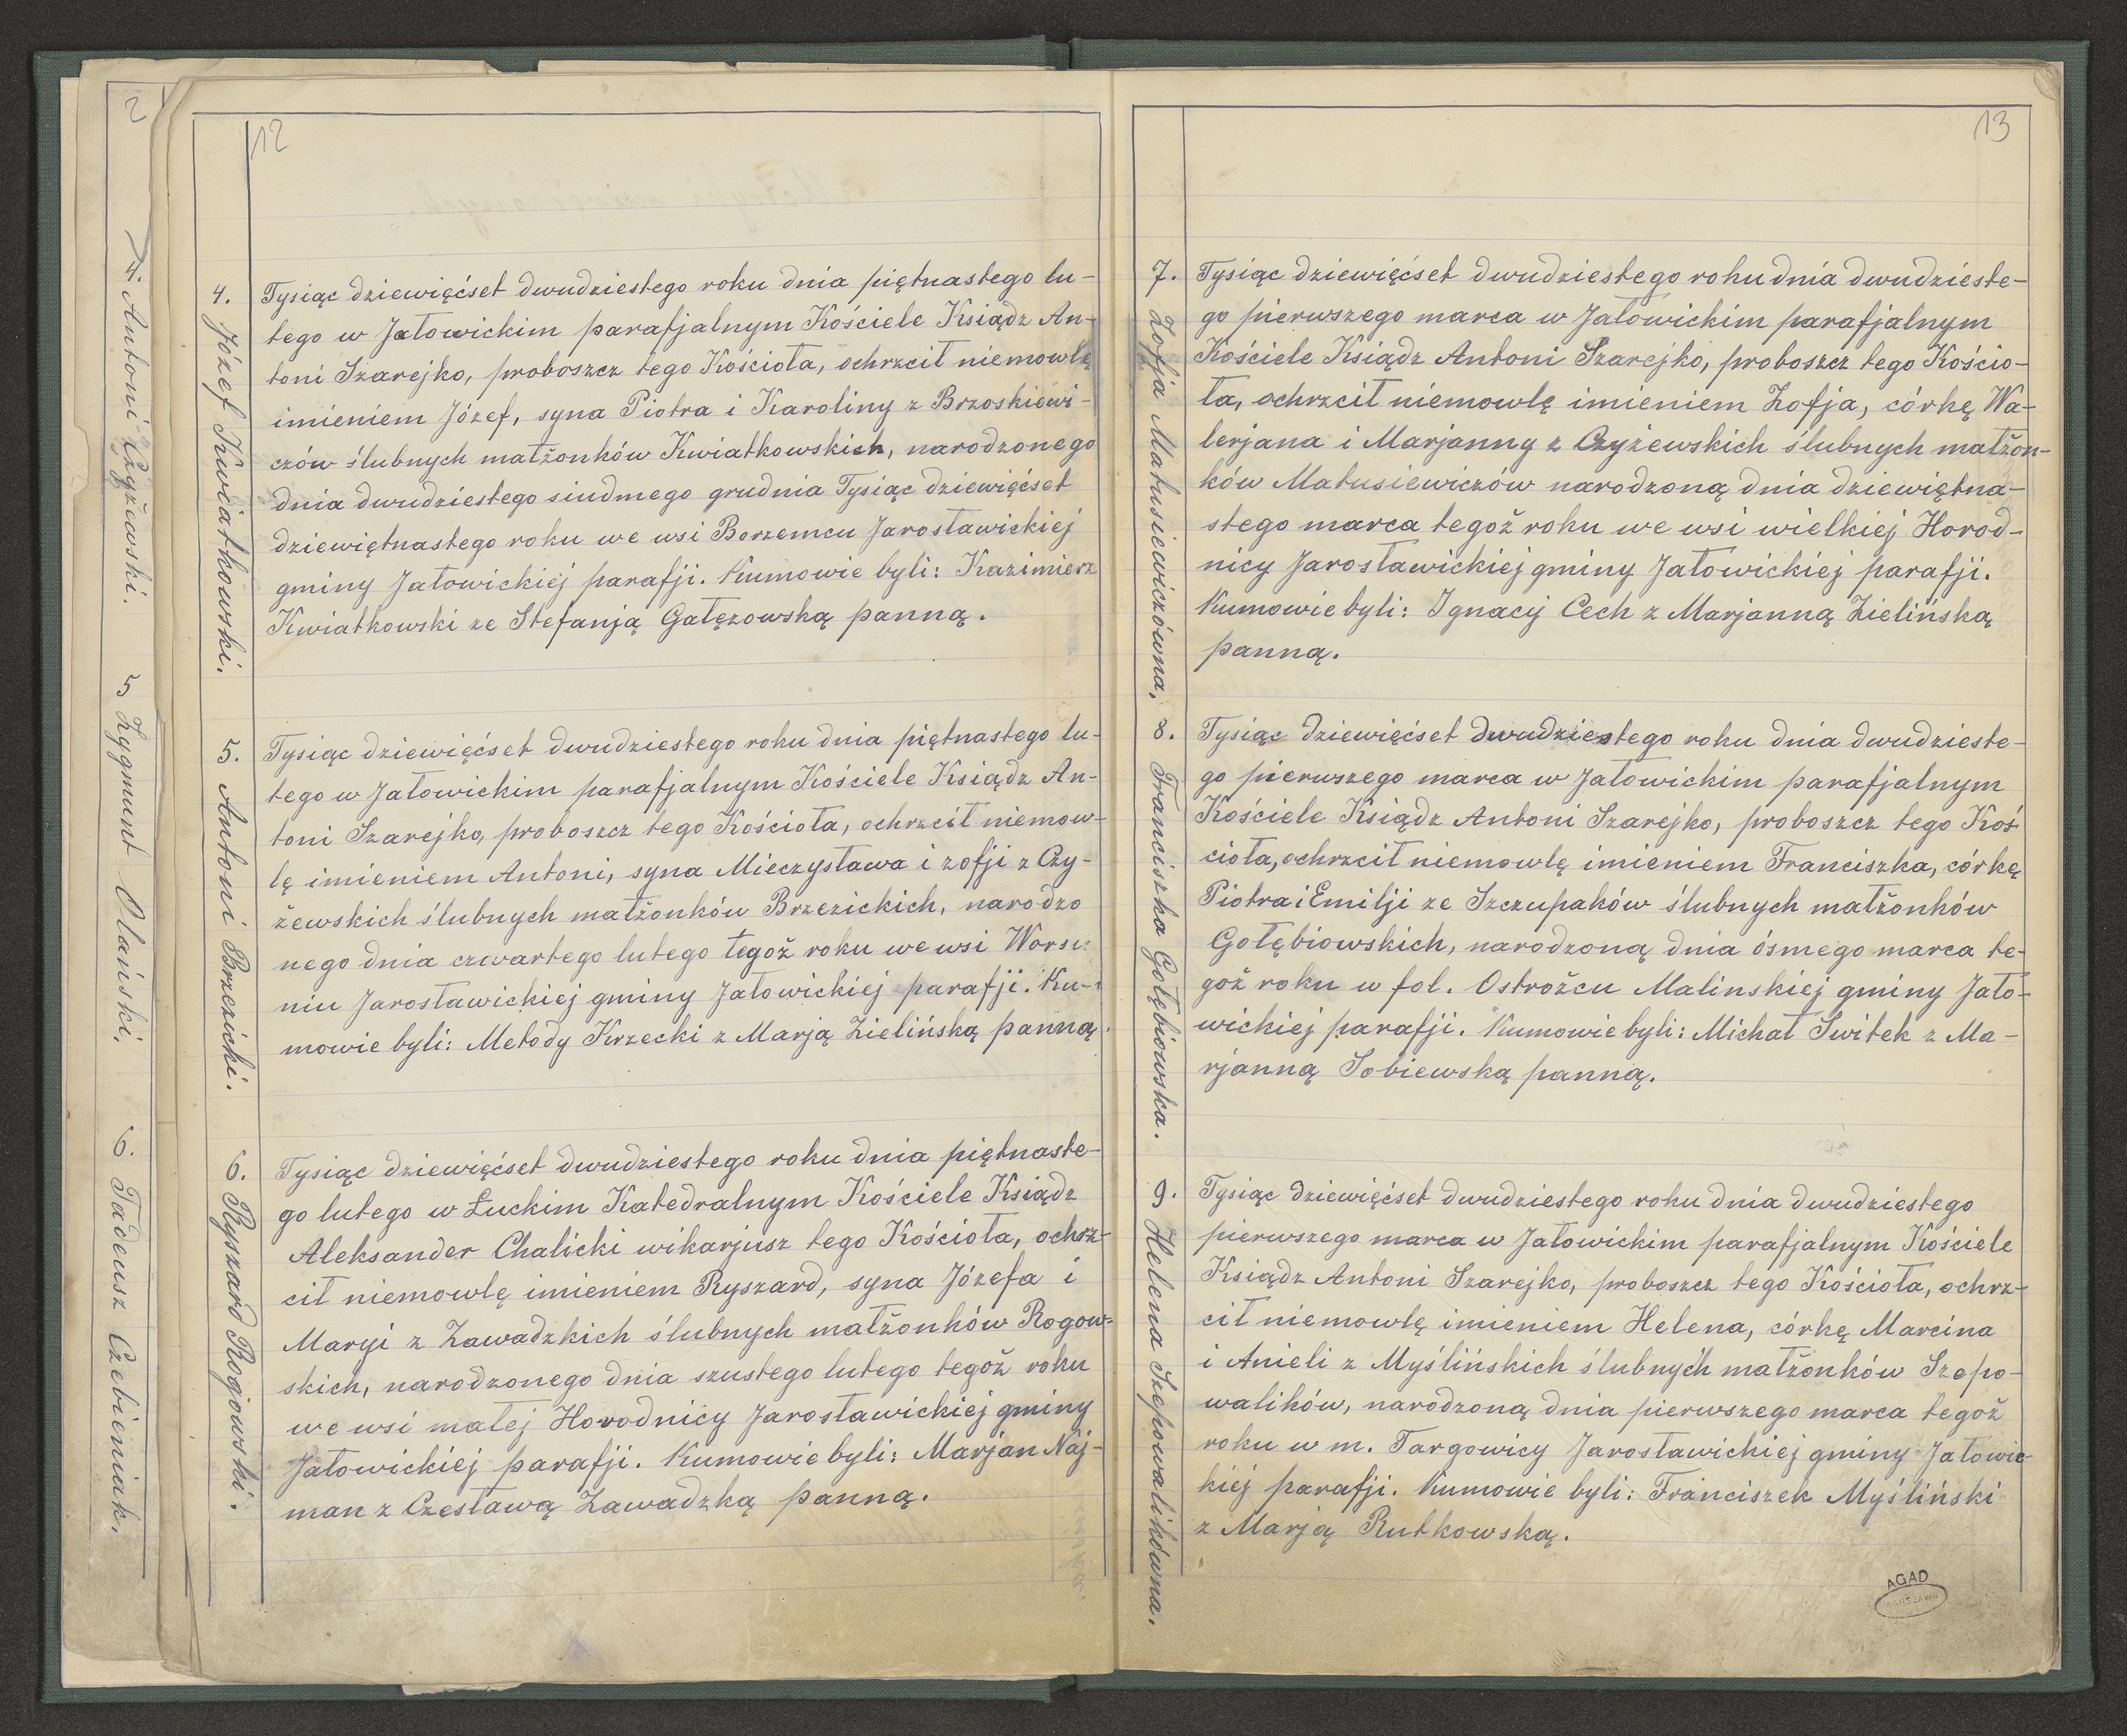 2
4. Antoni Czyżewski.
5 Zygmunt Olański.
6. Tadeusz Czebieniak.
12
4. Józef Kwiatkowski.
Tysiąc dziewięćset dwudziestego roku dnia piętnastego lu-
tego w Jałowickim parafjalnym Kościele Ksiądz An-
toni Szarejko, proboszcz tego Kościoła, ochrzcił niemowlę
imieniem Józef, syna Piotra i Karoliny z Brzoskiewi-
czów ślubnych małżonków Kwiatkowskich, narodzonego
dnia dwudziestego siudmego grudnia Tysiąc dziewięćset
dziewiętnastego roku we wsi Borzemcu Jarosławickiej
gminy Jałowickiej parafji. Kumowie byli: Kazimierz
Kwiatkowski ze Stefanją Gałęzowską panną.
5. Antoni Brzezicki.
Tysiąc dziewięćset dwudziestego roku dnia piętnastego lu-
tego w Jałowickim parafjalnym Kościele Ksiądz An-
toni Szarejko, proboszcz tego Kościoła, ochrzcił niemow-
lę imieniem Antoni, syna Mieczysława i zofji z Czy-
żewskich ślubnych małżonków Brzezickich, narodzo
nego dnia czwartego lutego tegoż roku we wsi Worsi-
niu Jarosławickiej gminy Jałowickiej parafji. Ku-
mowie byli: Metody Krzecki z Marją Zielińską panną.
6. Ryszard Rogowski.
Tysiąc dziewięćset dwudziestego roku dnia piętnaste-
go lutego w Łuckim Katedralnym Kościele Ksiądz
Aleksander Chalicki wikarjusz tego Kościoła, ochrz-
cił niemowlę imieniem Ryszard, syna Józefa i
Maryi z Zawadzkich ślubnych małżonków Rogow-
skich, narodzonego dnia szustego lutego tegoż roku
we wsi małej Horodnicy Jarosławickiej gminy
Jałowickiej parafji. Kumowie byli: Marjan Naj-
man z Czesławą Zawadzką panną.
13
7. Zofja Matusiewiczówna.
Tysiąc dziewięćset dwudziestego roku dnia dwudzieste-
go pierwszego marca w Jałowickim parafjalnym
Kościele Ksiądz Antoni Szarejko, proboszcz tego Kościo-
ła, ochrzcił niemowlę imieniem Zofja, córkę Wa-
lerjana i Marjanny z Czyżewskich ślubnych małżon-
ków Matusiewiczów narodzoną dnia dziewiętna-
stego marca tegoż roku we wsi wielkiej Horod-
nicy Jarosławickiej gminy Jałowickiej parafji.
Kumowie byli: Ignacy Cech z Marjanną Zielińską
panną.
8. Franciszka Gołębiowska.
Tysiąc dziewięćset dwudziestego roku dnia dwudzieste-
go pierwszego marca w Jałowickim parafjalnym
Kościele Ksiądz Antoni Szarejko, proboszcz tego Koś-
cioła, ochrzcił niemowlę imieniem Franciszka, córkę
Piotra i Emilji ze Szczupaków ślubnych małżonków
Gołębiowskich, narodzoną dnia ósmego marca te-
goż roku w fol. Ostrożcu Malinskiej gminy Jało-
wickiej parafji. Kumowie byli: Michał Switek z Ma-
rjanną Sobiewską panną.
9. Helena Szepowalikówna.
Tysiąc dziewięćset dwudziestego roku dnia dwudziestego
pierwszego marca w Jałowickim parafjalnym Kościele
Ksiądz Antoni Szarejko, proboszcz tego Kościoła, ochrz-
cił niemowlę imieniem Helena, córkę Marcina
i Anieli z Myślińskich ślubnych małżonków Szepo-
walików, narodzoną dnia pierwszego marca tegoż
roku w m. Targowicy Jarosławickiej gminy Jałowic-
kiej parafji. Kumowie byli: Franciszek Myśliński
z Marją Rutkowską.
AGAD
WARSZAWA